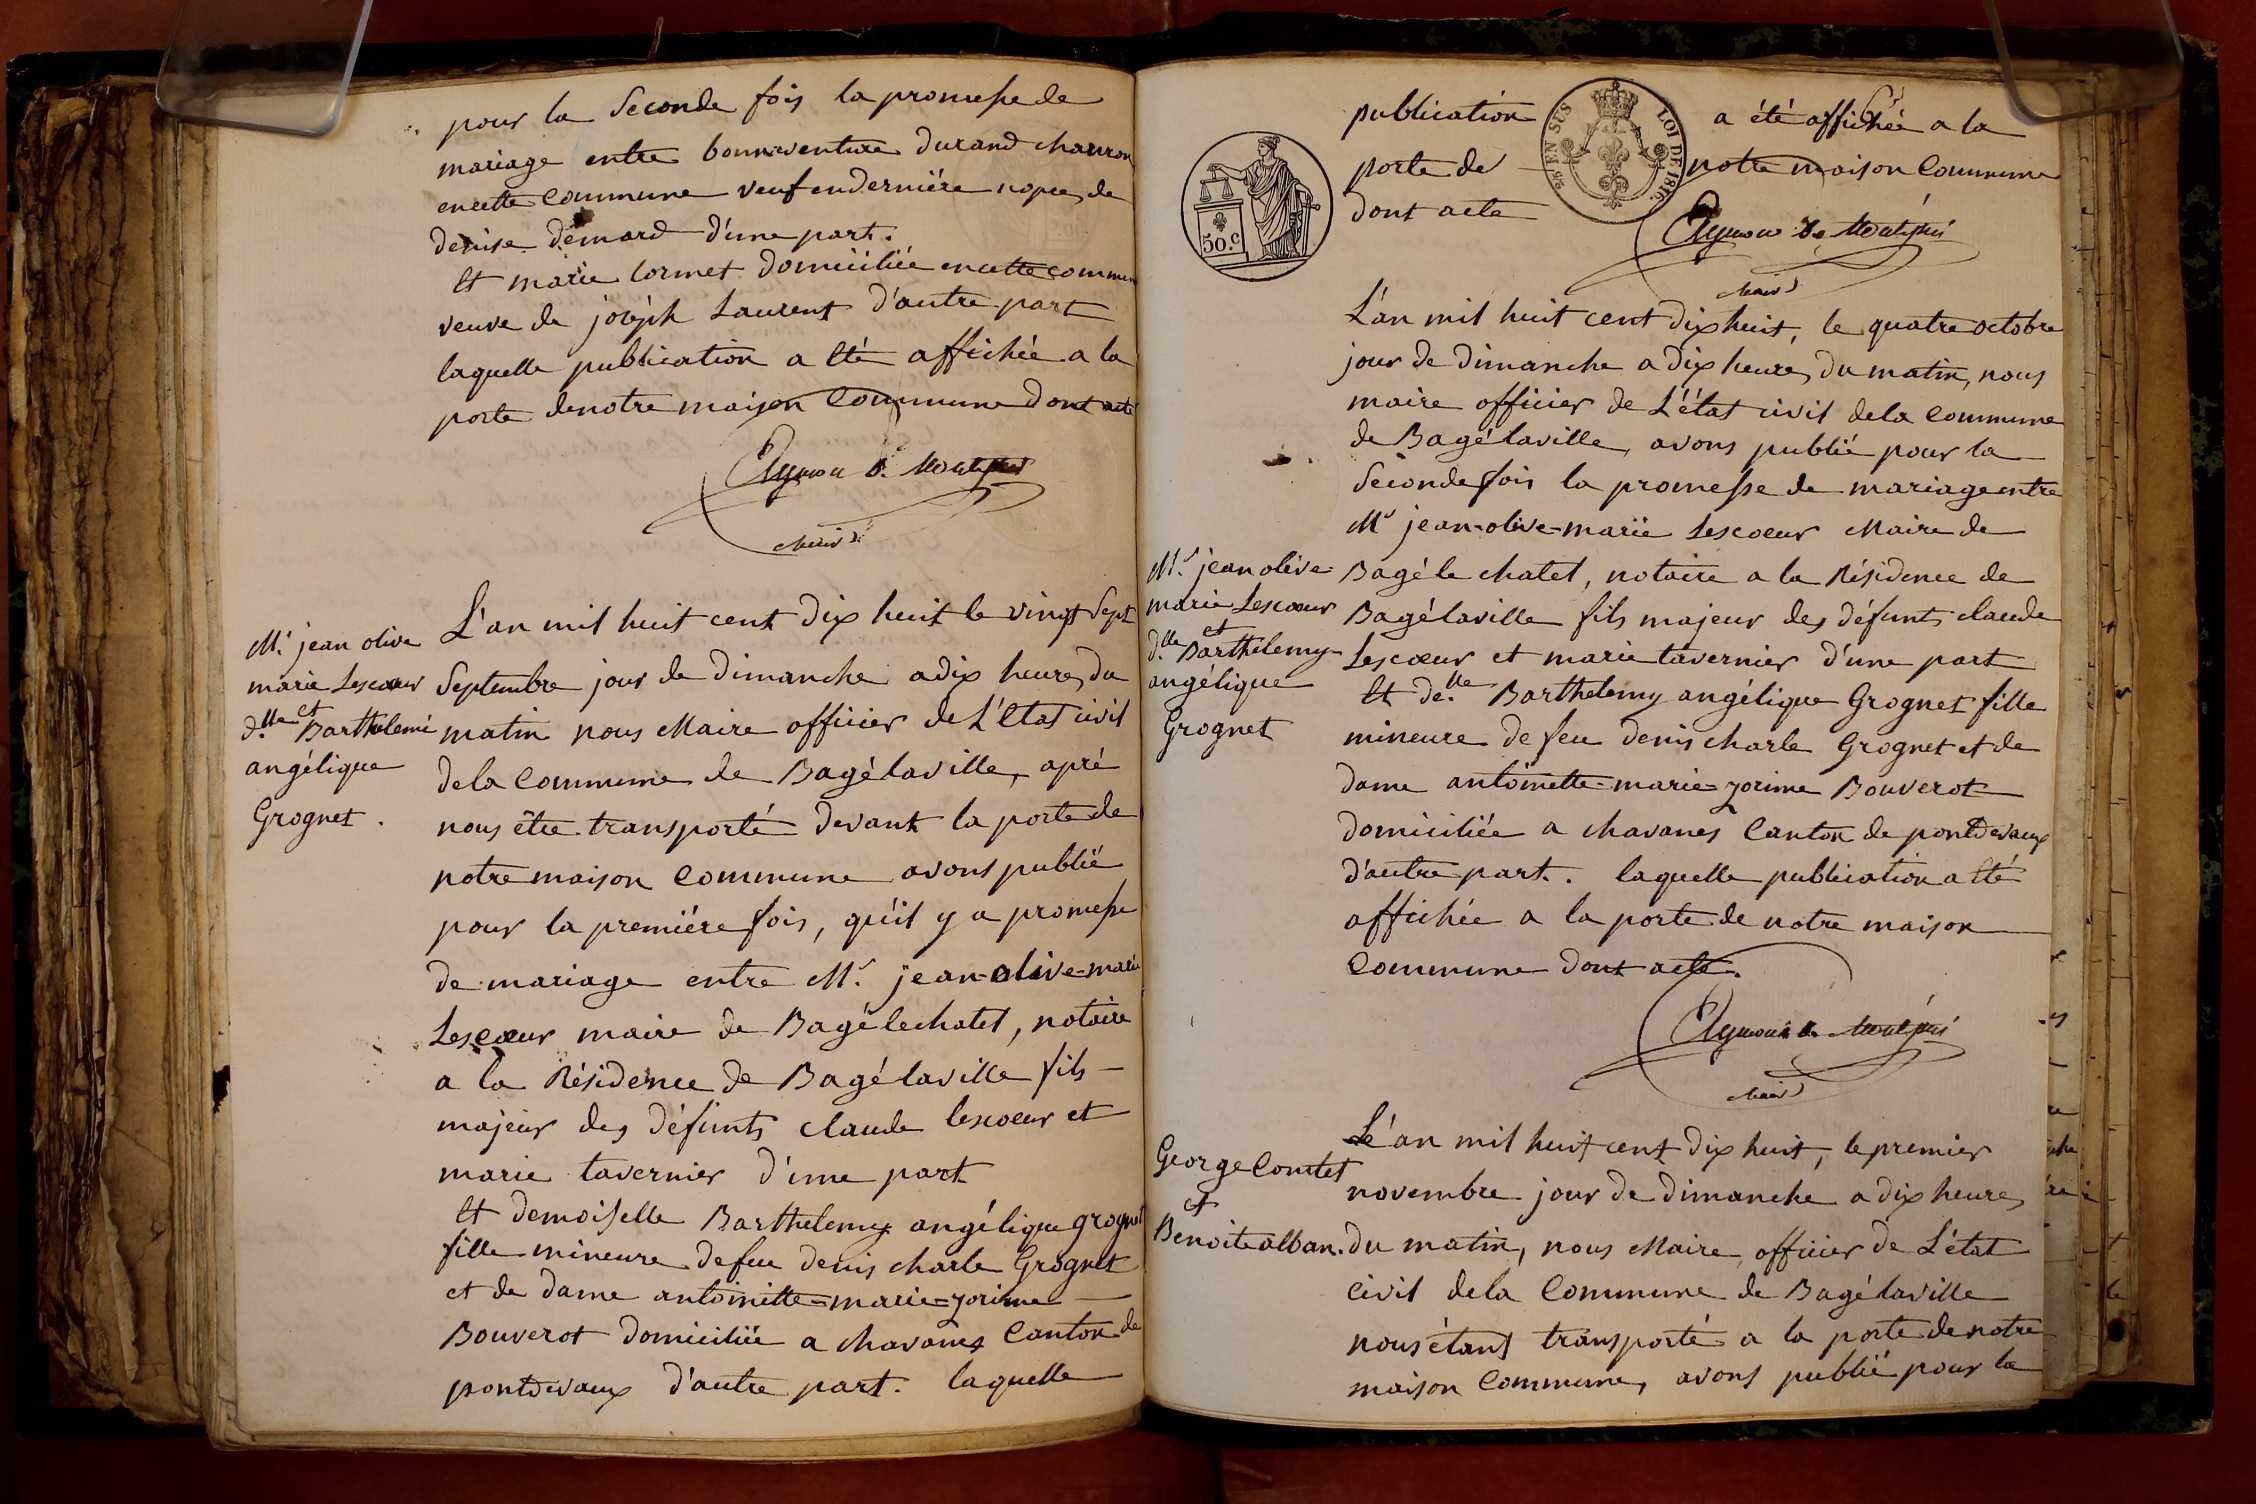 pour la Seconde fois la promesse de
mariage entre bonnaventure durand charron
en cette commune veuf en derniére noces de
denise démard d'une part.
et marie cormet domiciliée en cette commun
veuve de joséph Laurent d'autre part
laquelle publication a été affichée a la
porte de notre maison commune dont acte
Maire
Mr. jean olive
marie Lescoeur
et
d.lle Barthelemi
angélique
Grognet.
L'an mil huit cent dix huit le vingt Sept
Septembre jour de dimanche a dix heures du
matin nous Maire officier de L'état civil
de la commune de Bagé laville, aprés
nous être transporté devant la porte de
notre maison commune avons publié
pour la premiére fois, qu'il y a promesse
de mariage entre Mr. jean-olive-marie
Lescoeur maire de Bagé le chatel, notaire
a la Résidence de Bagé laville fils
majeur des défunts claude lescoeur et
marie tavernier d'une part
Et demoiselle Barthelemy angélique grognet
fille mineure de feu denis charle Grognet
et de dame antoinette=marie=zorime
Bouverot domiciliée a chavanes canton de
pontdevaux d'autre part. laquelle
publication a été affichée a la
porte de notre maison Commune
dont acte
50.c
25C EN SUS
LOI DE 1816.
Maire
L'an mil huit cent dix huit, le quatre octobre
jour de dimanche a dix heures du matin, nous
maire officier de L'état civil de la commune
de Bagé laville, avons publié pour la
Seconde fois la promesse de mariage entre
Mr jean-olive-marie Lescoeur Maire de
Mr. jean olive
marie Lescoeur
et
d.lle Barthelemy-
angélique
Grognet
Bagé le chatel, notaire a la Résidence de
Bagé laville fils majeur des défunts claude
Lescoeur et marie tavernier d'une part
Et de.lle Barthelemy angélique Grognet fille
mineure de feu denis charle Grognet et de
dame antoinette-marie-zorime Bouverot
domiciliée a chavanes Canton de pontdevaux
d'autre part. laquelle publication a été
affichée a la porte de notre maison
Commune dont acte.
Maire
George Comtet
et
Benoite alban.
L'an mil huit cent dix huit, le premier
novembre jour de dimanche a dix heures
du matin, nous Maire officier de L'état
civil de la Commune de Bagé laville
nous étant transporté a la porte de notre
maison Commune, avons publié pour la